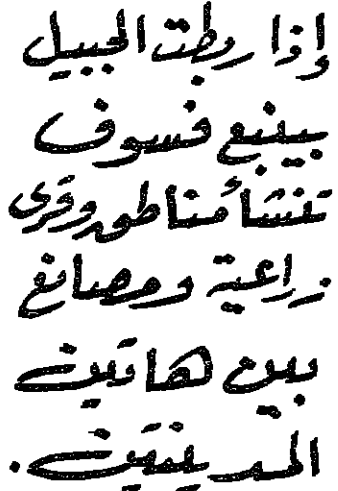 إذا ربطت الجبيل
بينبع فسوف
تنشأ مناطق وقرى
زراعية ومصانع
بين هاتين
المدينتين.